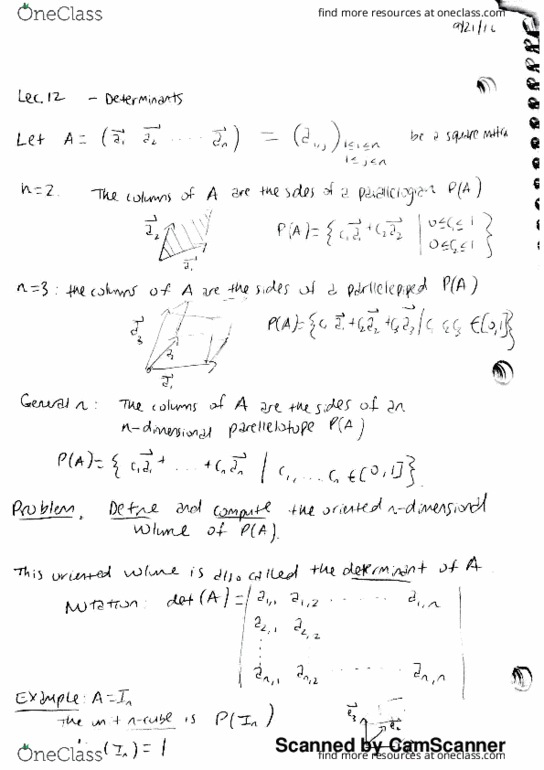 OneClass
find more resources at oneclass.com
9/21/16
Lec. 12 - Determinants
Let A = (a⃗₁ a⃗₂ ..... a⃗ₙ) = (aᵢ,ⱼ) 1≤i≤n 1≤j≤n be a square matrix
n=2. The columns of A are the sides of a parallelogram P(A)
a⃗₂
a⃗₁
P(A) = { c₁a⃗₁ + c₂a⃗₂ | 0≤c₁≤1 0≤c₂≤1 }
n=3: the columns of A are the sides of a parllelepiped P(A)
a⃗₃
a⃗₂
a⃗₁
P(A) = { c₁a⃗₁ + c₂a⃗₂ + c₃a⃗₃ | c₁ c₂ c₃ ∈ [0,1] }
General n: The columns of A are the sides of an
n-dimensional parellelotope P(A)
P(A) = { c₁a⃗₁ + ... + cₙa⃗ₙ | c₁, ... cₙ ∈ [0,1] }.
Problem. Define and compute the oriented n-dimensional
volume of P(A).
This oriented volume is also called the determinant of A.
Notation: det(A) = | a₁,₁ a₁,₂ ..... a₁,ₙ |
a₂,₁ a₂,₂
⋮
aₙ,₁ aₙ,₂ ..... aₙ,ₙ
Example: A = Iₙ
The unit n-cube is P(Iₙ)
(Iₙ) = 1
a⃗₃
a⃗₂
Scanned by CamScanner
OneClass
find more resources at oneclass.com